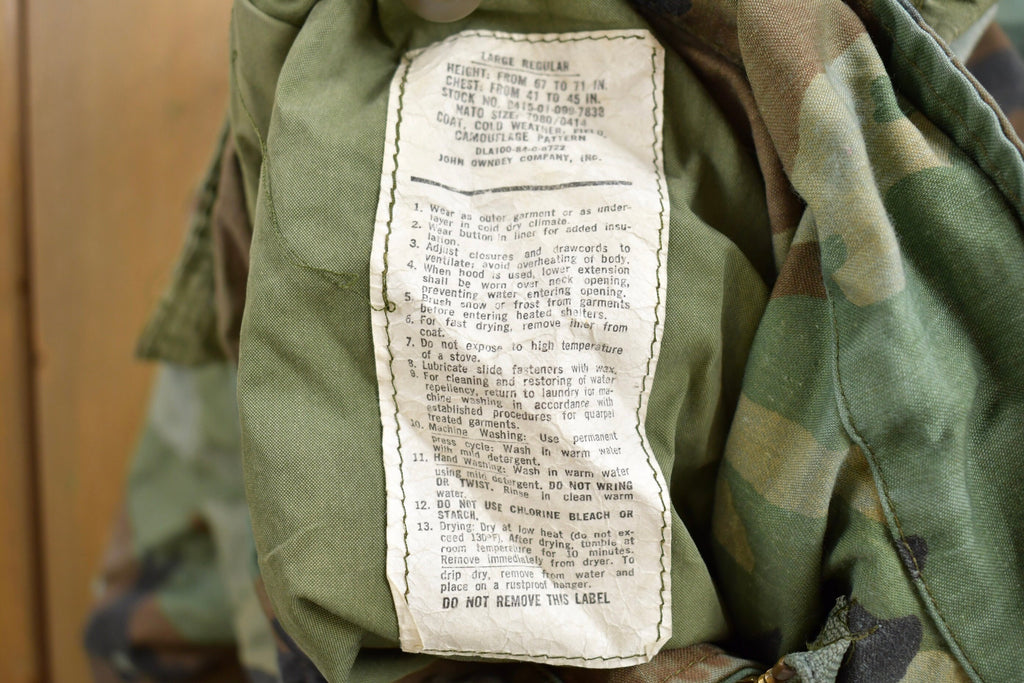 LARGE REGULAR
HEIGHT: FROM 67 TO 71 IN.
CHEST: FROM 41 TO 45 IN.
STOCK NO. 8415-01-099-7833
NATO SIZE: 7080/0414
COAT, COLD WEATHER, FIELD,
CAMOUFLAGE PATTERN
DLA100-84-C-0722
JOHN OWNBEY COMPANY, INC.
1. Wear as outer garment or as under-
layer in cold dry climate.
2. Wear button in liner for added insu-
lation.
3. Adjust closures and drawcords to
ventilate; avoid overheating of body.
4. When hood is used, lower extension
shall be worn over neck opening,
preventing water entering opening.
5. Brush snow or frost from garments
before entering heated shelters.
6. For fast drying, remove liner from
coat.
7. Do not expose to high temperature
of a stove.
8. Lubricate slide fasteners with wax.
9. For cleaning and restoring of water
repellency, return to laundry for ma-
chine washing in accordance with
established procedures for quarpel
treated garments.
10. Machine Washing: Use permanent
press cycle: Wash in warm water
with mild detergent.
11. Hand Washing: Wash in warm water
using mild detergent. DO NOT WRING
OR TWIST. Rinse in clean warm
water.
12. DO NOT USE CHLORINE BLEACH OR
STARCH.
13. Drying: Dry at low heat (do not ex-
ceed 130°F). After drying, tumble at
room temperature for 10 minutes.
Remove immediately from dryer. To
drip dry, remove from water and
place on a rustproof hanger.
DO NOT REMOVE THIS LABEL